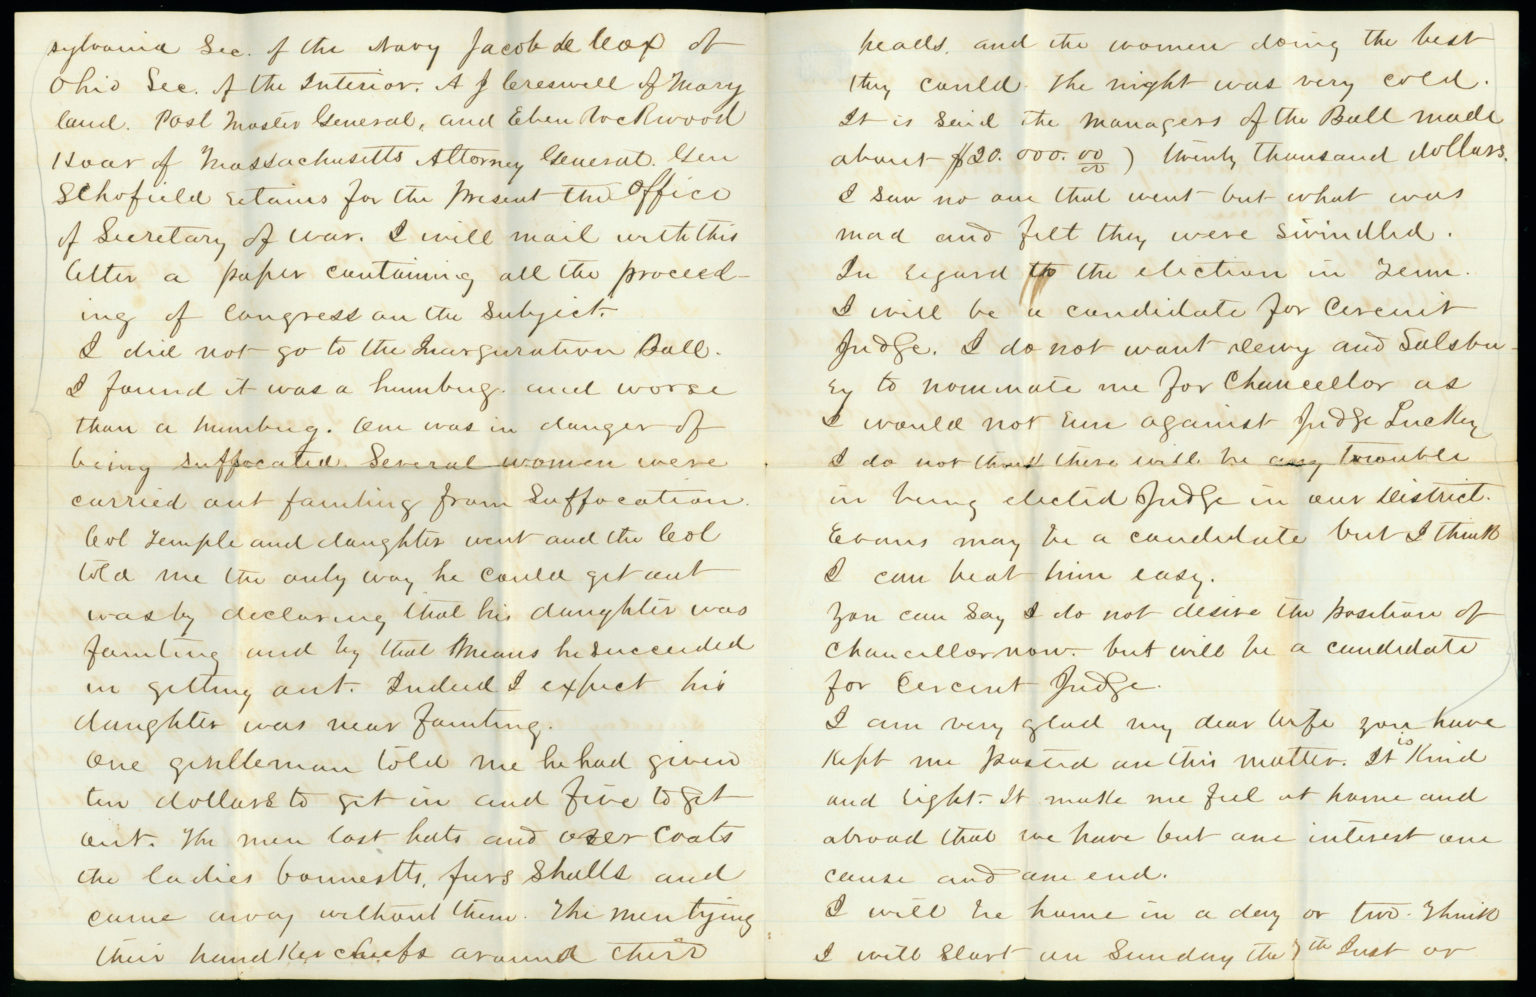 sylvania Sec. of the Navy Jacob d Cox of
Ohio Sec. of the Interior. A J Creswell of Mary
land. Post Master General, and Eben Rockwood
Hoar of Massachusetts Attorney General. Gen
Schofield retains for the Present the Office
of Secretary of War. I will mail with this
letter a paper containing all the proceed-
ing of Congress on the Subject.
I did not go to the Inarguration Ball.
I found it was a humbug. and worse
than a humbug. One was in danger of
being suffocated. Several women were
carried out fainting from Suffocation
Col Temple and daughter went and the Col
told me the only way he could get out
was by declaring that his daughter was
fainting and by that Means he succeeded
in getting out. Indeed I expect his
daughter was near fainting.
One gentleman told me he had given
ten dollars to get in and five to get
out. The men lost hats and over Coats
the ladies bonnetts, furs Shalls and
came away without them. The men tying
their handkerchiefs around their
heads. and the women doing the best
they could. The night was very cold.
It is Said the Managers of the Ball made
about $20.000.00/00) twenty thousand dollars.
I saw no one that went but what was
mad and felt they were swindled.
In regard to the election in Tenn.
I will be a candidate for Circuit
Judge. I do not want and Salsbu-
ry to nominate me for Chancellor as
I would not run against Judge Luckey
I do not think there will be any trouble
in being elected Judge in our District.
Evans may be a candidate but I think
I can beat him easy.
You can Say I do not desire the position of
Chancellor now. but will be a candidate
for Circuit Judge.
I am very glad my dear wife you have
kept me posted on this matter. It is Kind
and right. It make me feel at home and
abroad that we have but one interest one
cause and one end.
I will be home in a day or two. Think
I will Start on Sunday the 7th Inst or